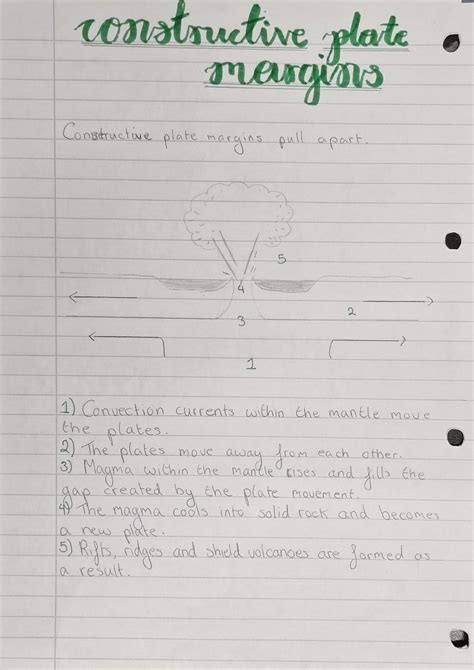 constructive plate
margins
Constructive plate margins pull apart.
5
4
2
3
1
1) Convection currents within the mantle move
the plates.
2) The plates move away from each other.
3) Magma within the mantle rises and fills the
gap created by the plate movement.
4) The magma cools into solid rock and becomes
a new plate.
5) Rifts, ridges and shield volcanoes are formed as
a result.